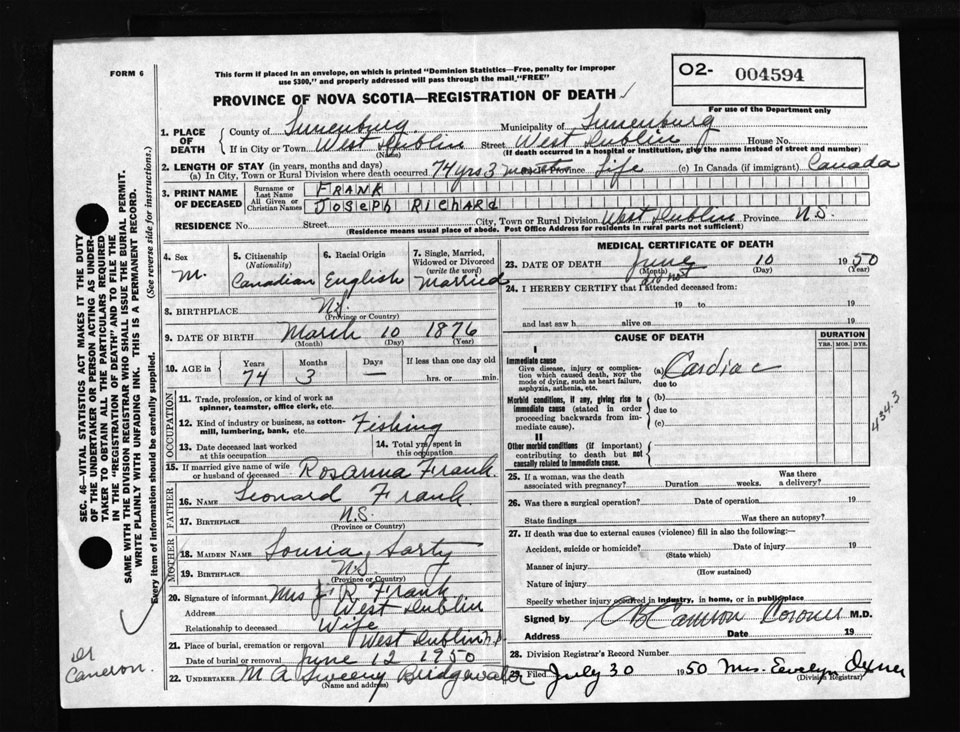 FORM 6
This form if placed in an envelope, on which is printed "Dominion Statistics—Free, penalty for improper
use $300," and properly addressed will pass through the mail, "FREE"
O2- 004594
For use of the Department only
PROVINCE OF NOVA SCOTIA—REGISTRATION OF DEATH
1. PLACE OF DEATH
County of Lunenburg Municipality of Lunenburg
If in City or Town West Dublin Street West Dublin House No.
(Name) (If death occurred in a hospital or institution, give the name instead of street and number)
2. LENGTH OF STAY (in years, months and days)
(a) In City, Town or Rural Division where death occurred 74 yrs 3 months Province Life (c) In Canada (if immigrant) Canada
3. PRINT NAME OF DECEASED
Surname or Last Name FRANK
All Given or Christian Names JOSEPH RICHARd
RESIDENCE No. Street City, Town or Rural Division West Dublin Province N.S.
(Residence means usual place of abode. Post Office Address for residents in rural parts not sufficient)
4. Sex
M.
5. Citizenship
(Nationality)
Canadian
6. Racial Origin
English
7. Single, Married,
Widowed or Divorced
(write the word)
Married
8. BIRTHPLACE N.S.
(Province or Country)
9. DATE OF BIRTH March 10 1876
(Month) (Day) (Year)
10. AGE in Years Months Days If less than one day old
74 3 — hrs. or min.
OCCUPATION
11. Trade, profession, or kind of work as
spinner, teamster, office clerk, etc.
12. Kind of industry or business, as cotton-
mill, lumbering, bank, etc. Fishing
13. Date deceased last worked
at this occupation
14. Total yrs spent in
this occupation
15. If married give name of wife
or husband of deceased Rosanna Frank.
FATHER
16. NAME Leonard Frank
17. BIRTHPLACE N.S.
(Province or Country)
MOTHER
18. MAIDEN NAME Lousia Sarty
19. BIRTHPLACE N.S.
(Province or Country)
20. Signature of informant Mrs J. R. Frank
Address West Dublin
Relationship to deceased Wife
21. Place of burial, cremation or removal West Dublin N.S.
Date of burial or removal June 12 1950
22. UNDERTAKER M A Sweeny Bridgewater
(Name and address)
MEDICAL CERTIFICATE OF DEATH
23. DATE OF DEATH June 10 1950
(Month) (Day) (Year)
did not
24. I HEREBY CERTIFY that I attended deceased from:
19 to 19
and last saw h alive on 19
CAUSE OF DEATH
DURATION
YRS. MOS. DYS.
I
Immediate cause
Give disease, injury or complica-
tion which caused death, NOT the
mode of dying, such as heart failure,
asphyxia, asthenia, etc.
(a) Cardiac
due to
Morbid conditions, if any, giving rise to
immediate cause (stated in order
proceeding backwards from im-
mediate cause).
(b)
due to
(c)
II
Other morbid conditions (if important)
contributing to death but not
causally related to immediate cause.
434.3
25. If a woman, was the death
associated with pregnancy? Duration weeks. Was there
a delivery?
26. Was there a surgical operation? Date of operation 19
State findings Was there an autopsy?
27. If death was due to external causes (violence) fill in also the following:—
Accident, suicide or homicide? Date of injury 19
(State which)
Manner of injury
(How sustained)
Nature of injury
Specify whether injury occurred in industry, in home, or in public place
Signed by Cameron Coroner M.D.
Address Date 19
28. Division Registrar's Record Number
29. Filed July 30 1950 Mrs. Evelyn
(Division Registrar)
SEC. 46—VITAL STATISTICS ACT MAKES IT THE DUTY
OF THE UNDERTAKER OR PERSON ACTING AS UNDER-
TAKER TO OBTAIN ALL THE PARTICULARS REQUIRED
IN THE "REGISTRATION OF DEATH" AND TO FILE THE
SAME WITH THE DIVISION REGISTRAR WHO SHALL ISSUE THE BURIAL PERMIT.
WRITE PLAINLY WITH UNFADING INK. THIS IS A PERMANENT RECORD.
Every item of information should be carefully supplied. (See reverse side for instructions.)
Dr
Cameron.